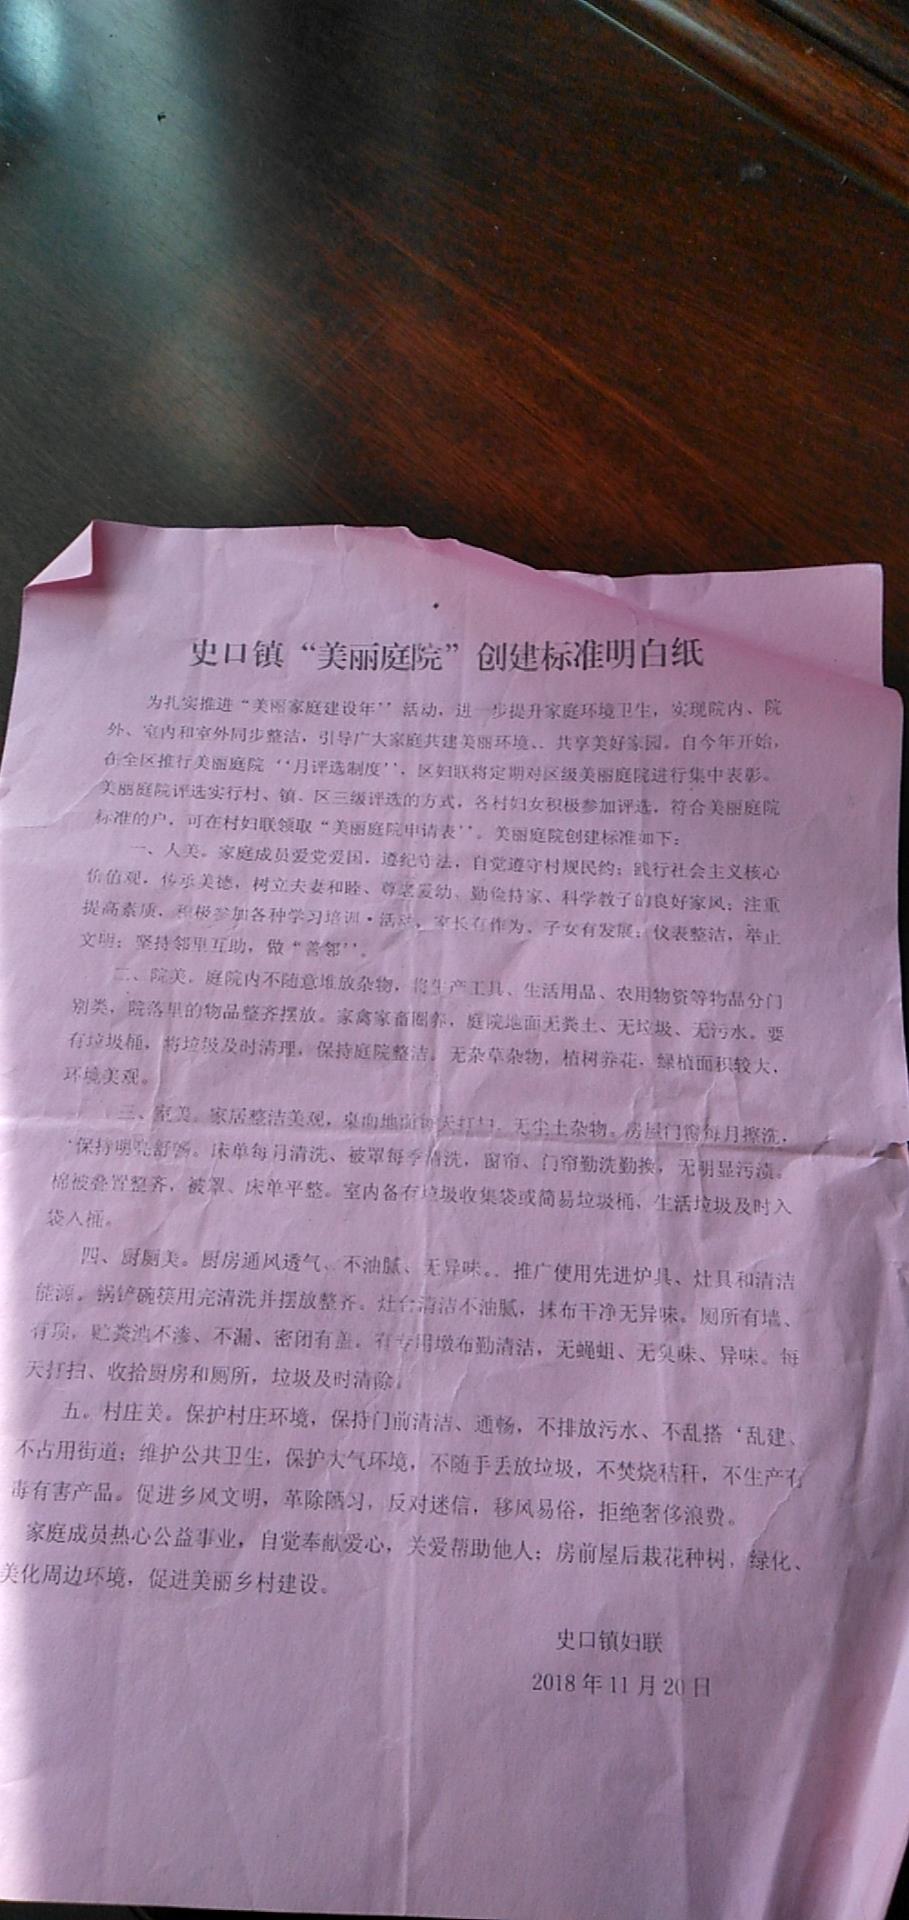 史口镇“美丽庭院”创建标准明白纸
为扎实推进“美丽家庭建设年’’活动，进一步提升家庭环境卫生，实现院内、院
外、室内和室外同步整洁，引导广大家庭共建美丽环境、、共享美好家园。自今年开始，
在全区推行美丽庭院‘‘月评选制度’’，区妇联将定期对区级美丽庭院进行集中表彰。
美丽庭院评选实行村、镇、区三级评选的方式，各村妇女积极参加评选，符合美丽庭院
标准的户，可在村妇联领取“美丽庭院申请表’’。美丽庭院创建标准如下：
一、人美。家庭成员爱党爱国，遵纪守法，自觉遵守村规民约；践行社会主义核心
价值观，传承美德，树立夫妻和睦、尊老爱幼、勤俭持家、科学教子的良好家风；注重
提高素质，积极参加各种学习培训·活动，家长有作为、子女有发展；仪表整洁，举止
文明；坚持邻里互助，做“善邻’’。
二、院美。庭院内不随意堆放杂物，将生产工具、生活用品、农用物资等物品分门
别类，院落里的物品整齐摆放。家禽家畜圈养，庭院地面无粪土、无垃圾、无污水。要
有垃圾桶，将垃圾及时清理，保持庭院整洁。无杂草杂物，植树养花，绿植面积较大，
环境美观。
三、家美。家居整洁美观，桌面地面每天打扫，无尘土杂物。房屋门窗每月擦洗，
‘保持明亮舒畅。床单每月清洗、被罩每季清洗，窗帘、门帘勤洗勤换，无明显污渍。
棉被叠置整齐，被罩、床单平整。室内备有垃圾收集袋或简易垃圾桶，生活垃圾及时入
袋入桶。
四、厨厕美。厨房通风透气、不油腻、无异味。。推广使用先进炉具、灶具和清洁
能源。锅铲碗筷用完清洗并摆放整齐。灶台清洁不油腻，抹布干净无异味。厕所有墙、
有顶，贮粪池不渗、不漏、密闭有盖。有专用墩布勤清洁，无蝇蛆、无臭味、异味。每
天打扫、收拾厨房和厕所，垃圾及时清除。
五。村庄美。保护村庄环境，保持门前清洁、通畅，不排放污水、不乱搭‘乱建、
不占用街道；维护公共卫生，保护大气环境，不随手丢放垃圾，不焚烧秸秆，不生产有
毒有害产品。促进乡风文明，革除陋习，反对迷信，移风易俗，拒绝奢侈浪费。
家庭成员热心公益事业，自觉奉献爱心，关爱帮助他人；房前屋后栽花种树，绿化、
美化周边环境，促进美丽乡村建设。
史口镇妇联
2018年11月20日